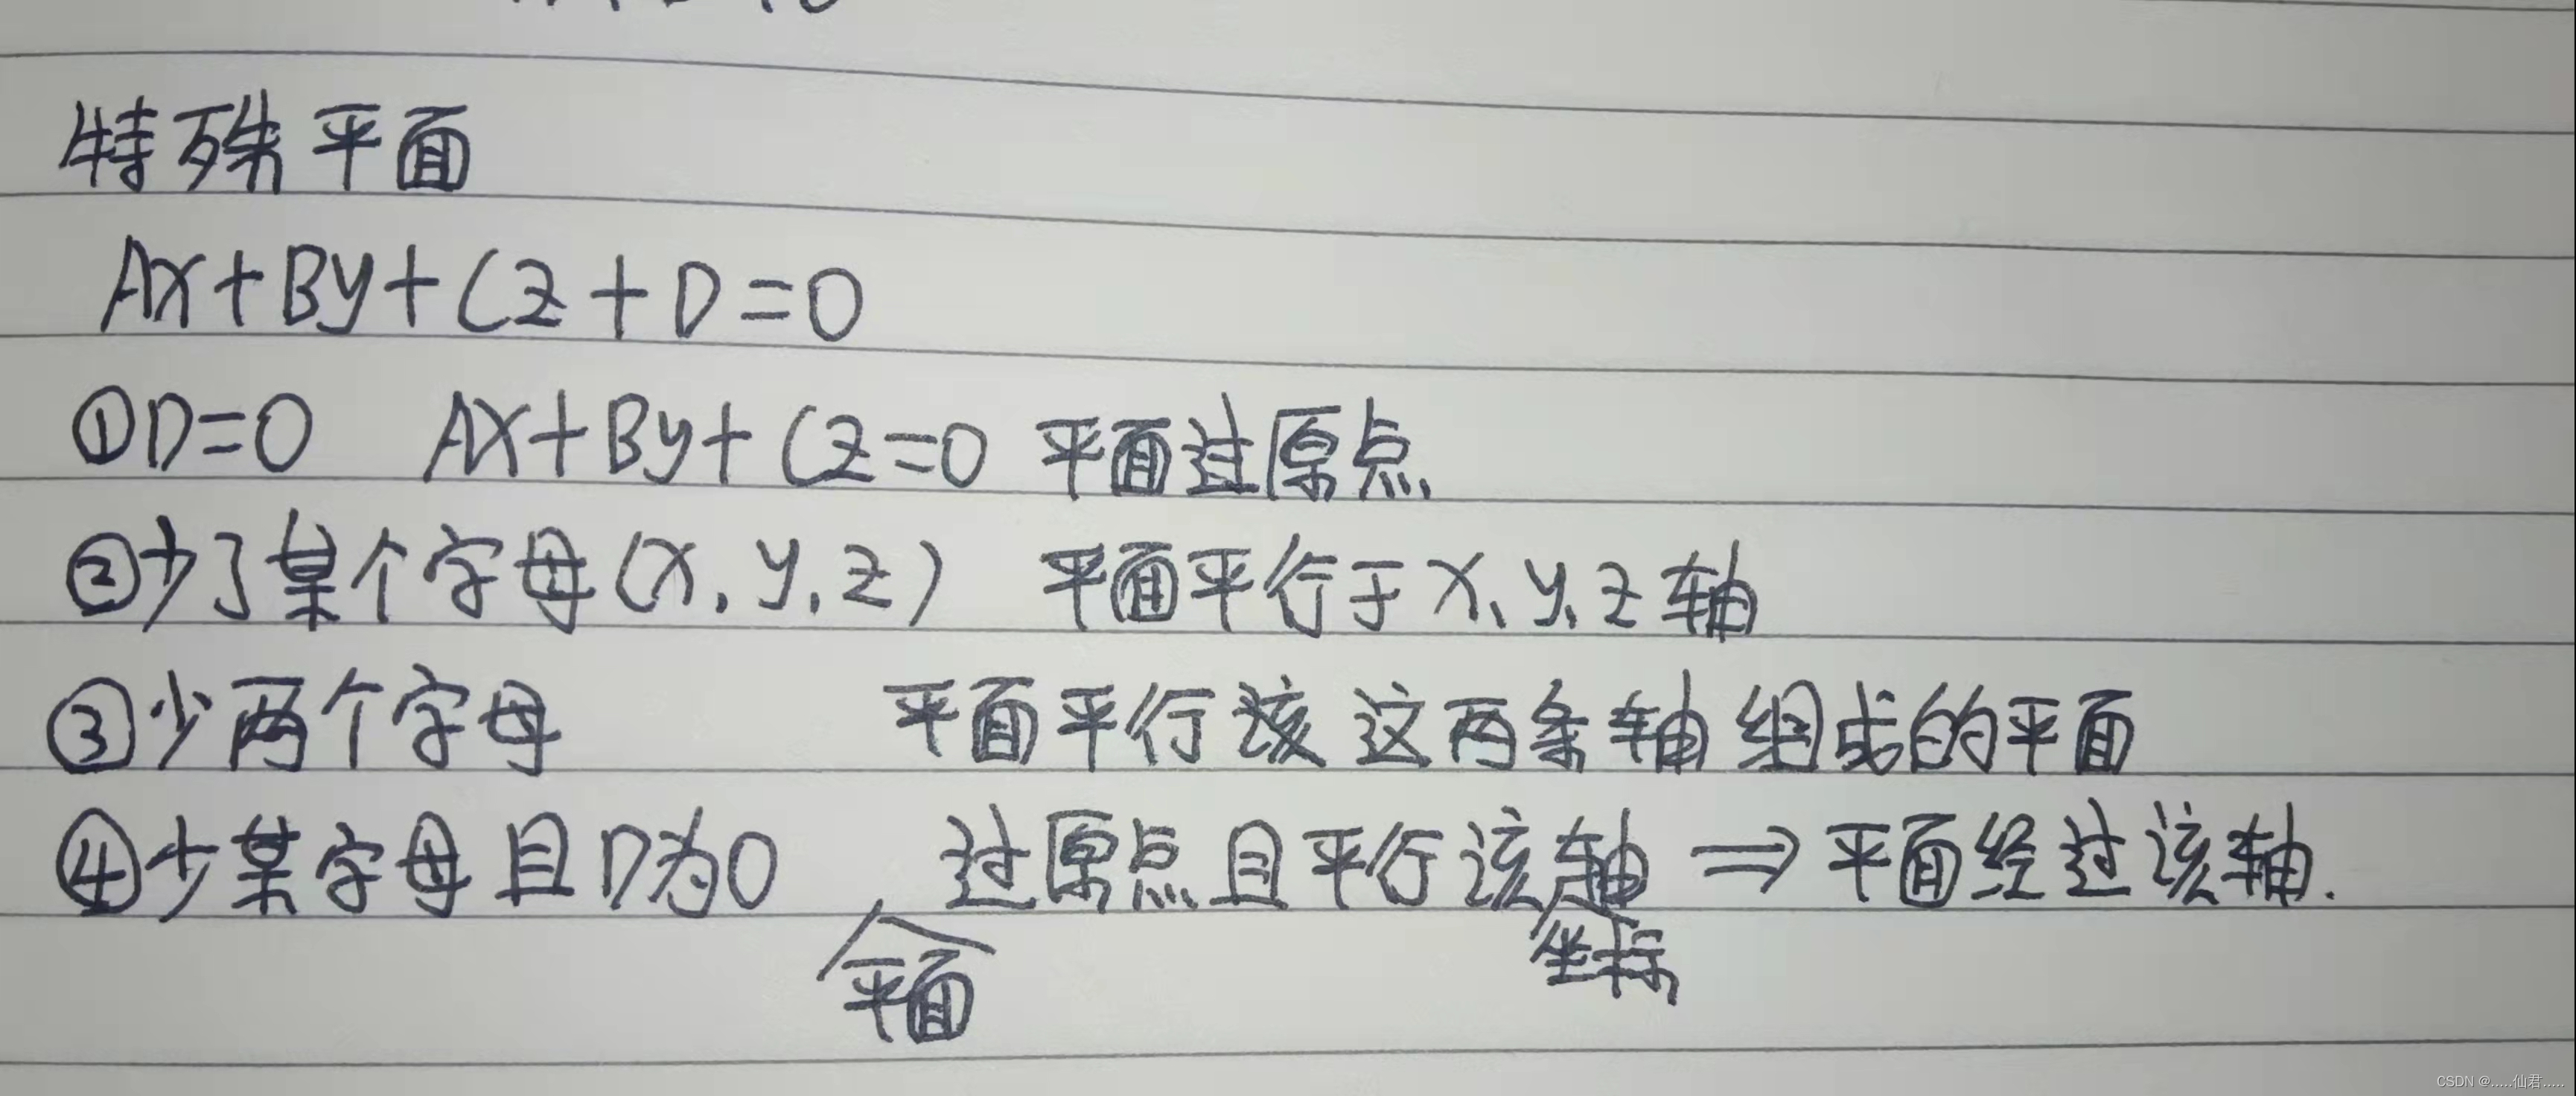 特殊平面
Ax+By+Cz+D=0
①D=0 Ax+By+Cz=0 平面过原点
②少了某个字母(x,y,z) 平面平行于x、y、z轴
③少两个字母 平面平行该这两条轴组成的平面
④少某字母且D为0 平面过原点且平行该坐标轴⇒平面经过该轴.
CSDN @.....仙君.....